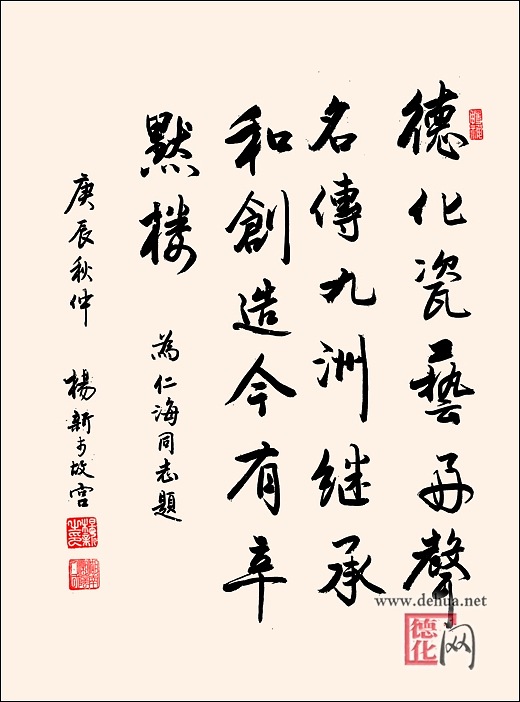 德化瓷藝聲
名傳九洲继承
和創造今有辛
默楼
為仁海同志題
庚辰秋仲 楊新于故宫
www.dehua.net
德化网